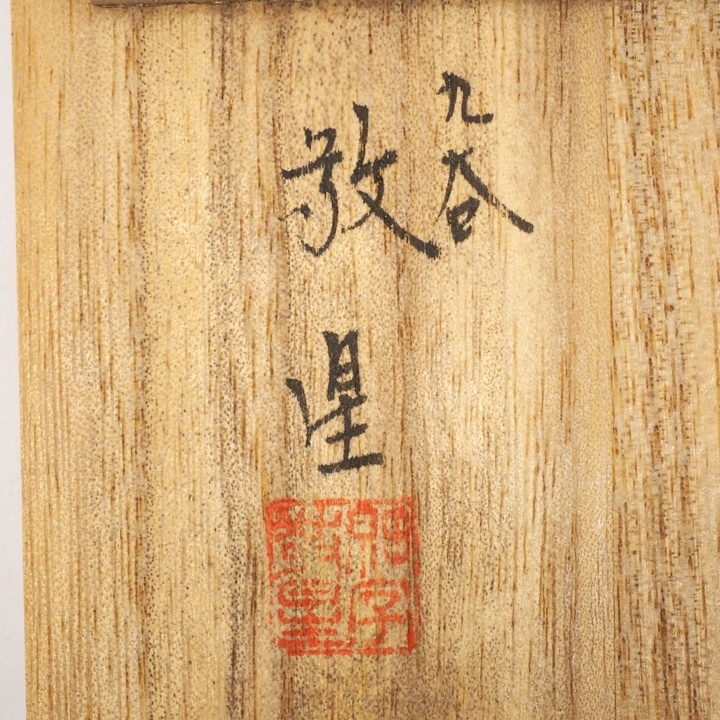 九谷
敬星